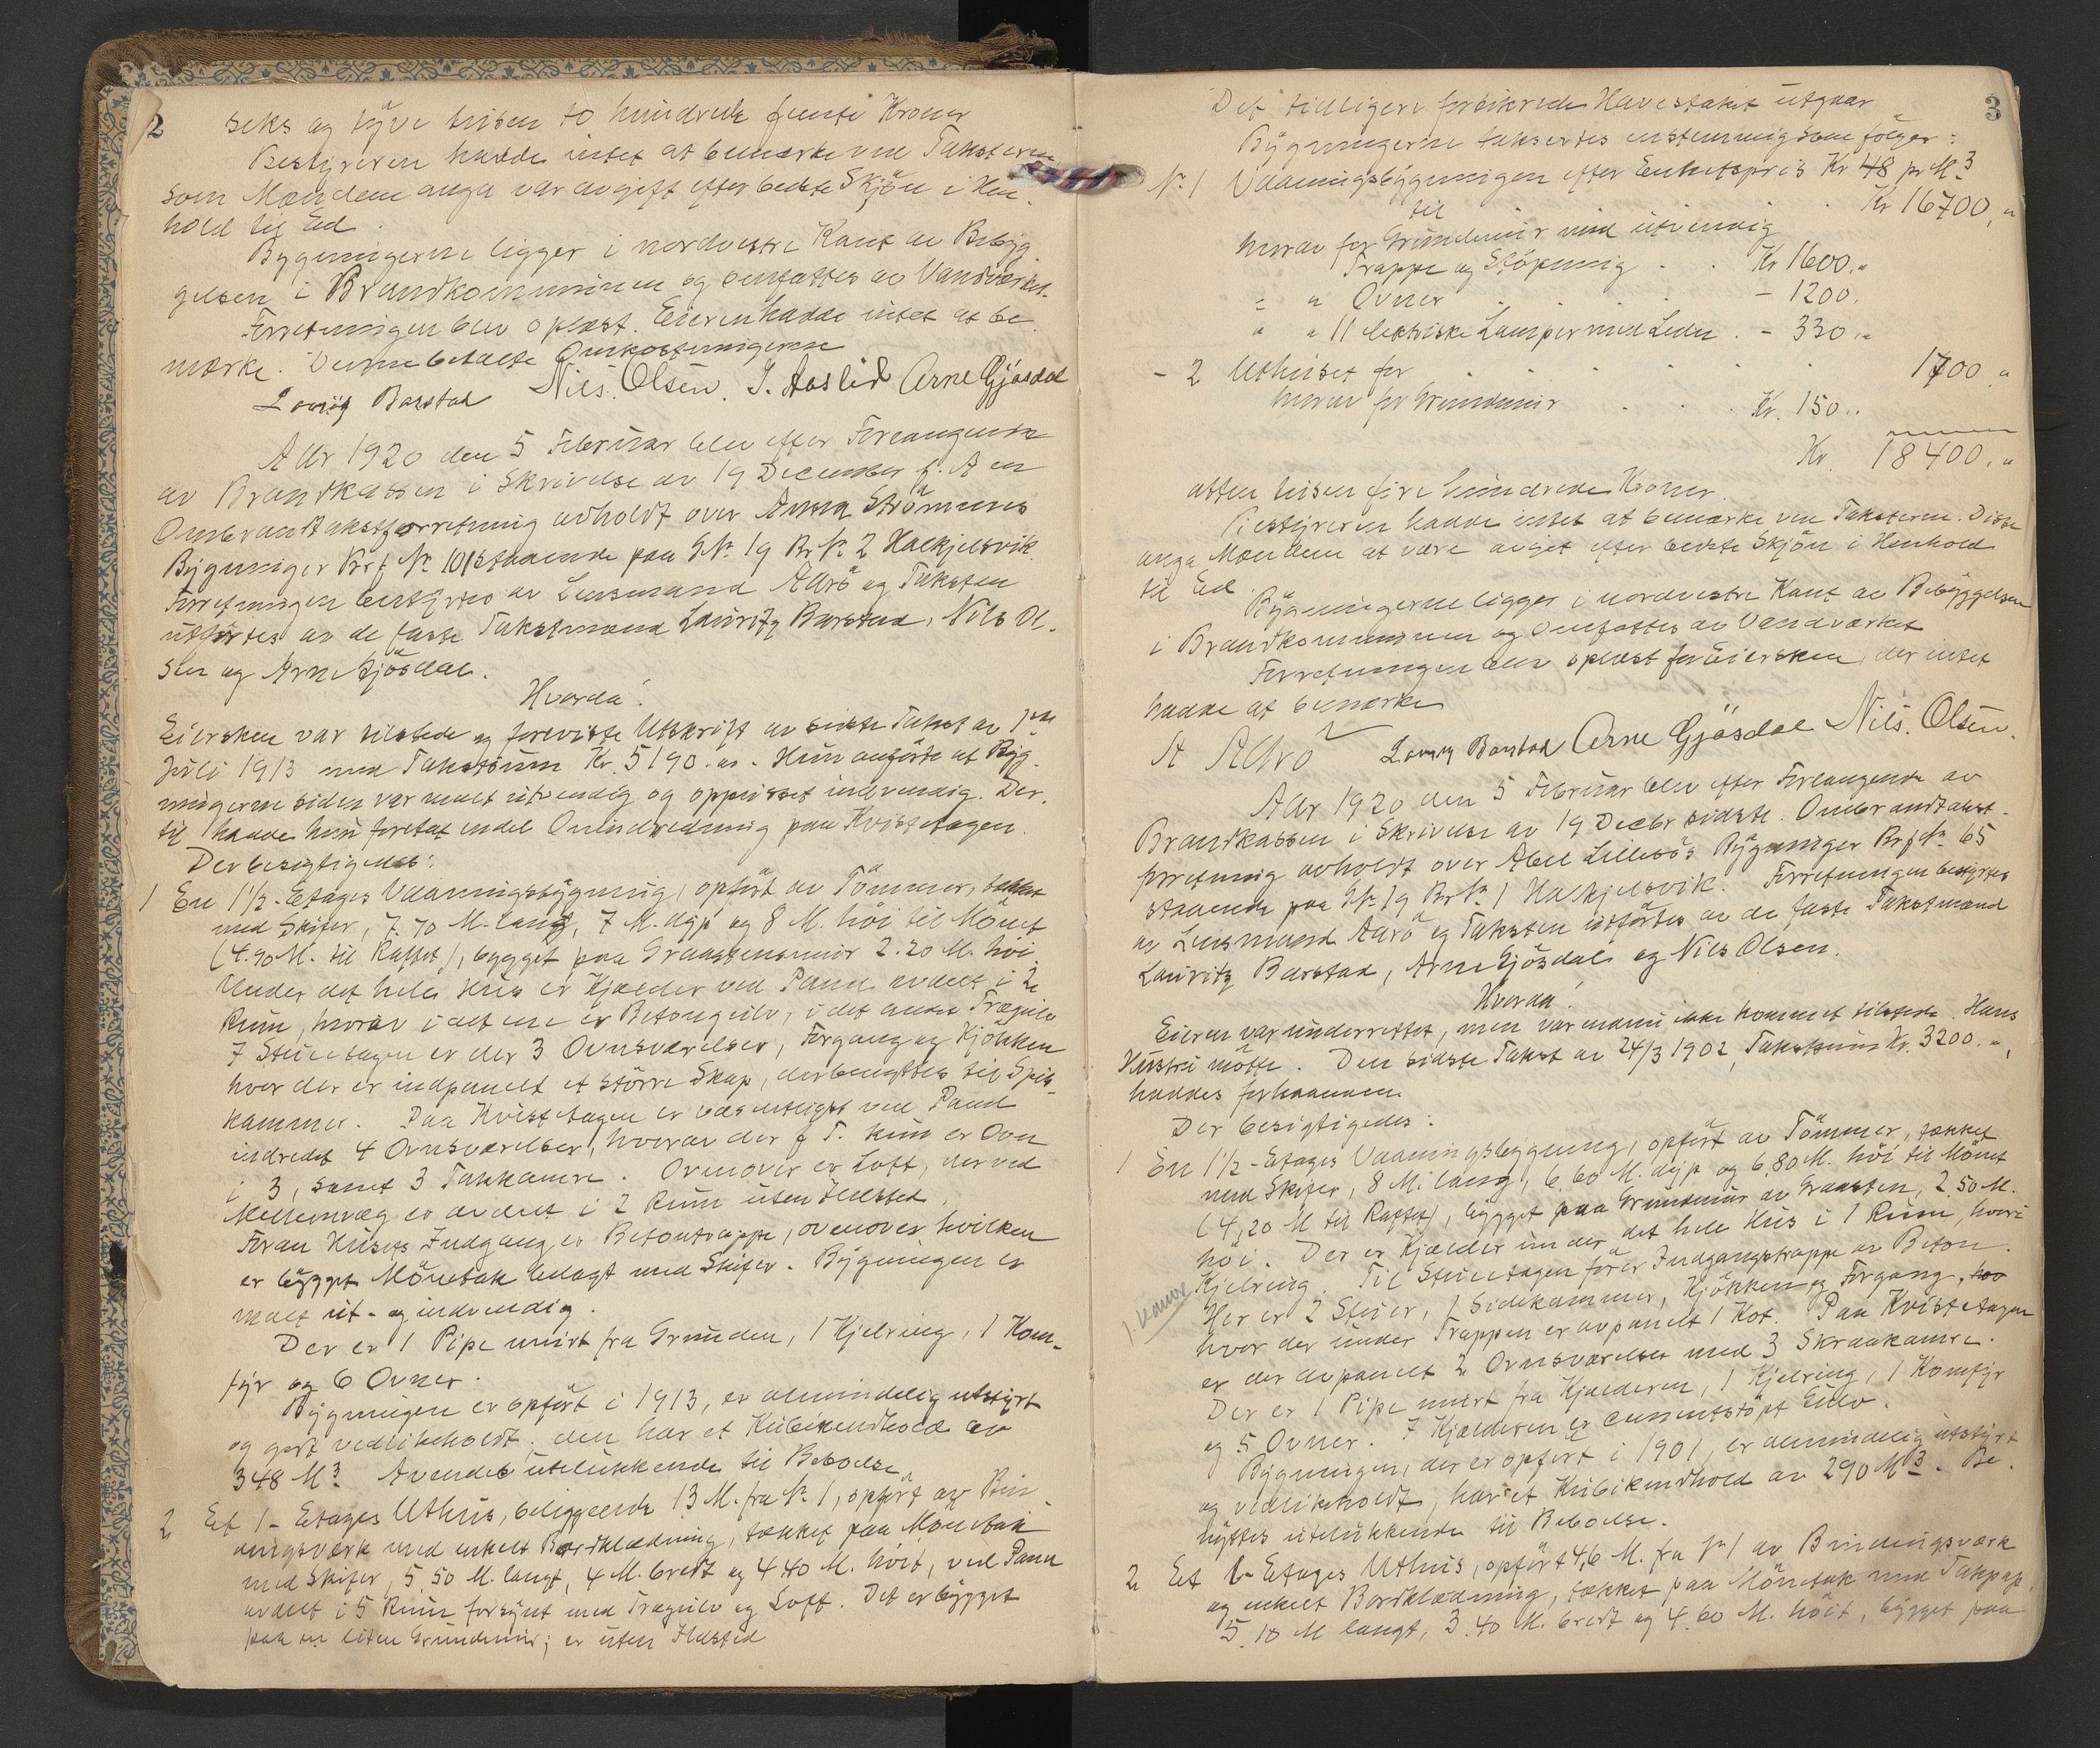 2
seks og tyve tusen to hundrede femti Kroner
Bestyreren hadde intet at bemærke ved Taksterne
som Mændene anga var avgift efter bedste Skjön i Hen-
hold til Ed.
Bygningerne ligger i nordvestre Kant av Bebyg-
gelsen i Brandkommunen og omfattes av Vandverket.
Forretningen blev oplæst. Eieren hadde intet at be-
mærke. Denne betalte Omkostningerne
Lauritz Barstad Nils. Olsen. J. Aaslid Arne Gjösdal
Aar 1920 den 5 Februar blev efter Forlangende
av Brandkassen i Skrivelse av 19 December f. A en
Ombrandtakstforretning avholdt over Anna Strömmens
Bygninger Brf. No 101 staaende paa GNo 19 BrNo 2 Halkjelsvik.
Forretningen bestyrtes av Lensmand Adrö og Taksten
utförtes av de faste Takstmænd Lauritz Barstad, Nils Ol-
sen og Arne Gjösdal.
Hvorda!
Eiersken var tilstede og foreviste Utskrift av sidste Takst av 1ste
Juli 1913 med Takstsum Kr. 5190.oo. Hun anförte at Byg-
ningerne siden var malt utvendig og oppusset indvendig. Der-
til hadde hun foretat endel Omindredning paa Kvistetagen.
Der besigtigedes:
1 En 1½-Etages Vaaningsbygning, opfört av Tömmer, tækket
med Skifer, 7.70 M. lang, 7 M. dyp og 8 M. höi til Mönet
(4.90 M. til Raftet), bygget paa Graastensmur 2.20 M. höi.
Under det hele Hus er Kjælder ved Panel avdelt i 2
Rum, hvorav i det ene er Betongulv, i det andet Trægulv
I Stueetagen er der 3 Ovnsværelser, Forgang og Kjökken
hvor der er indpanelt et större Skap, der benyttes til Spis-
kammer. Paa Kvistetagen er væsentligst ved Panel
indredet 4 Ovnsværelser, hvorav der f T. kun er Ovn
i 3, samt 3 Takkamre. Ovenover er Loft, der ved
Mellemvæg er avdelt i 2 Rum uten Ildsted.
Foran Husets Indgang er Betontrappe, ovenover hvilken
er bygget Mönetak belagt med Skifer. Bygningen er
malt ut- og indvendig.
Der er 1 Pipe murt fra Grunden, 1 Kjelring, 1 Kom-
fyr og 6 Ovner.
Bygningen er opfört i 1913, er almindelig utstyrt
og godt vedlikeholdt; den har et Kubikindhold av
348 M3. Avendes utelukkende til Beboelse.
2 Et 1-Etages Uthus, beliggende 13 M. fra No 1, opfört av Bin-
dingsverk med enkelt Bordklædning, tækket paa Mönetak
med Skifer, 5.50 M. langt, 4 M. bredt og 4.40 M. höit, ved Panel
avdelt i 5 Rum forsynt med Trægulv og Loft. Det er bygget
paa en liten Grundmur; er uten Ildsted
3
Det tidligere forsikrede Havestakit utgaar
Bygningerne taksertes enstemmig som fölger:
No 1 Vaaningsbygningen efter Enhetspris Kr 48 pr M3
til . . Kr 16700,"
herav for Grundmur med utvendig
Trappe og Stöpning . . Kr 1600,"
" " Ovner . . . . - 1200,
" " 11 elektriske Lamper med Ledn. - 330,"
- 2 Uthuset for . . . . . . 1700,"
herav for Grundmur . . . Kr. 150..
Kr. 18400,"
atten tusen fire hundrede Kroner.
Bestyreren hadde intet at bemærke ved Taksterne. Disse
anga Mændene at være avgit efter bedste Skjön i Henhold
til Ed.
Bygningerne ligger i nordvestre Kant av Bebyggelsen
i Brandkommunen og omfattes av Vandværket
Forretningen blev oplæst for Eiersken, der intet
hadde at bemærke
A Adrö Lauritz Barstad Arne Gjösdal Nils. Olsen.
Aar 1920 den 5 Februar blev efter Forlangende av
Brandkassen i Skrivelse av 19 Decbr sidste. Ombrandtakst-
forretning avholdt over Abel Lillesös Bygninger Brf No 65
staaende paa GNo 19 BrNo 1 Halkjelsvik. Forretningen bestyrtes
av Lensmand Adrö og Taksten utförtes av de faste Takstmænd
Lauritz Barstad, Arne Gjösdal og Nils Olsen.
Hvorda!
Eieren var underrettet, men var endnu ikke kommet tilstede. Hans
Hustru mötte. Den sidste Takst av 24/3 1902, Takstsum Kr. 3200.",
haddes forhaanden.
Der besigtigedes:
1 En 1½-Etages Vaaningsbygning, opfört av Tömmer, tækket
med Skifer, 8 M. lang, 6.60 M. dyp og 6.80 M. höi til Mönet
(4,20 M til Raftet), bygget paa Grundmur av Graasten, 2.50 M.
höi. Der er Kjælder under det hele Hus i 1 Rum, hvori
Kjelring. Til Stueetagen förer Indgangstrappe av Beton.
1. Kamr Her er 2 Stuer, 1 Sidekammer, Kjökken og Forgang, hvo
hvor der under Trappen er avpanelt 1 Kot. Paa Kvistetagen
er der avpanelt 2 Ovnsværelser med 3 Skraakamre.
Der er 1 Pipe murt fra Kjælderen, 1 Kjelring, 1 Komfyr
og 5 Ovner. I Kjælderen er cementstöpt Gulv.
Bygningen, der er opfört i 1901, er almindelig utstyrt
og vedlikeholdt, har et Kubikindhold av 290 M3. Be-
nyttes utelukkende til Beboelse.
2 Et 1-Etages Uthus, opfört 4,6 M. fra No 1 av Bindingsværk
og enkelt Bordklædning, tækket paa Mönetak med Takpap,
5.10 M langt, 3.40 M. bredt og 4.60 M. höit, bygget paa